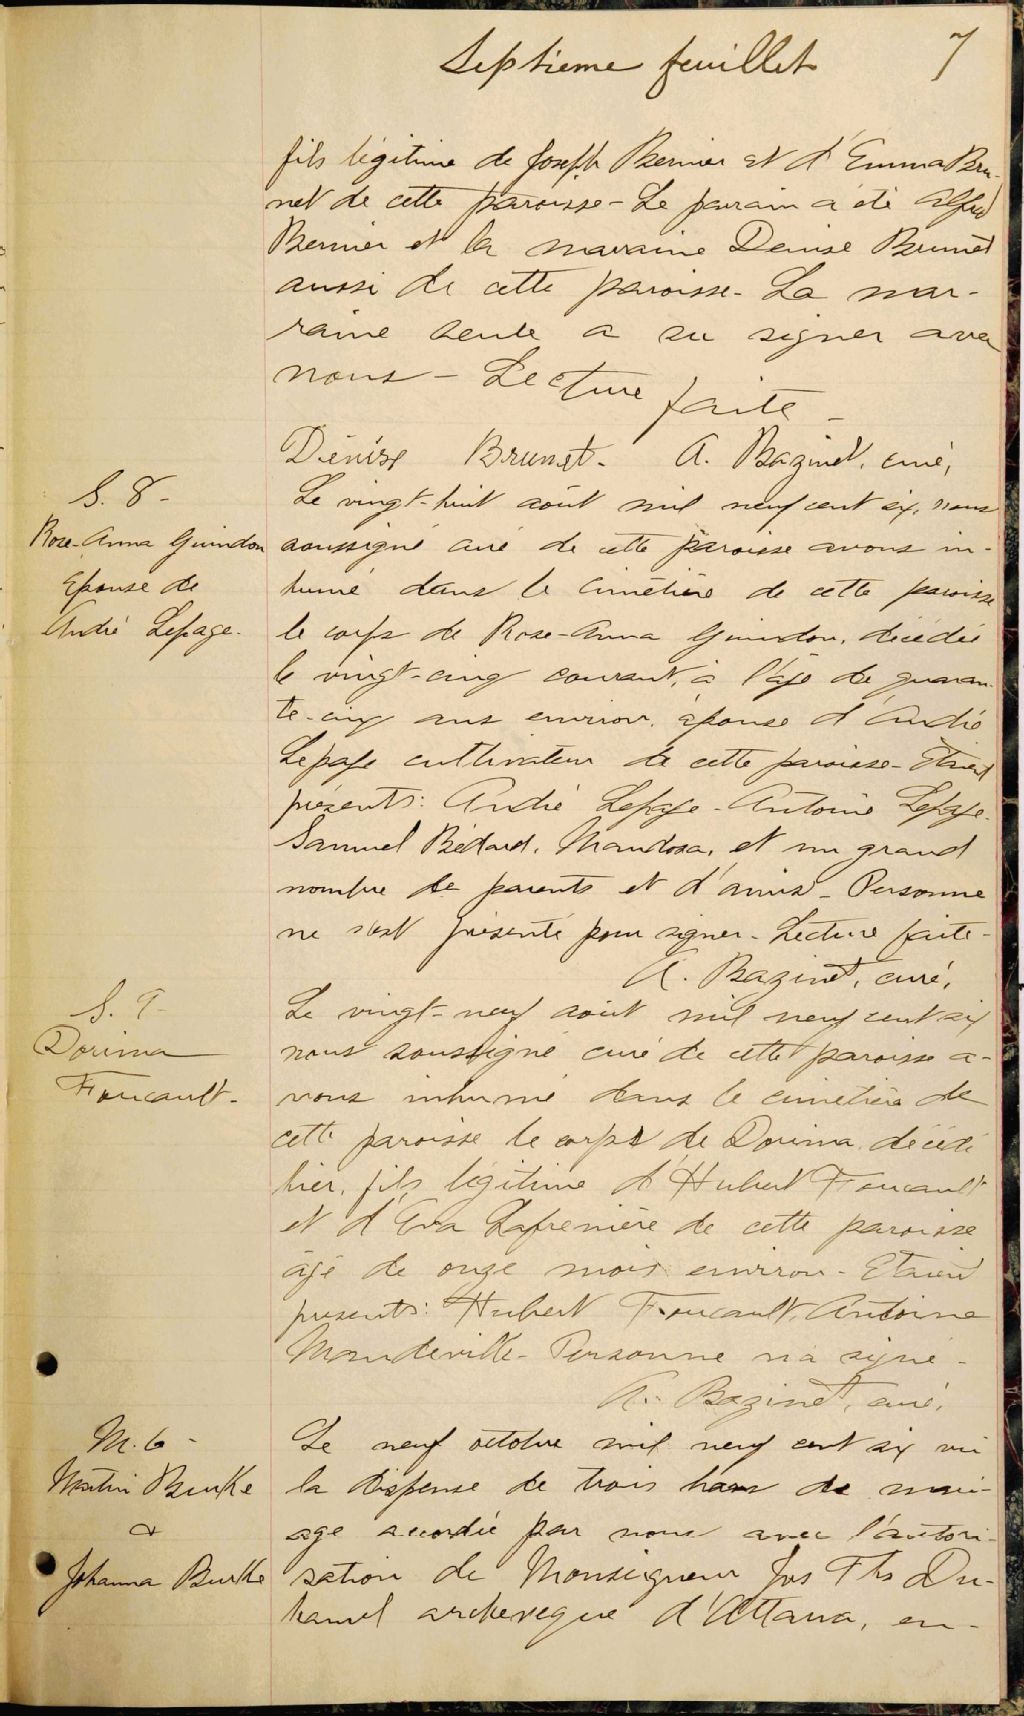 Septieme feuillet 7
fils légitime de Joseph Bernier et d'Emma Bru-
net de cette paroisse - Le parrain a été Alfred
Bernier et la marraine Denise Brunet
aussi de cette paroisse - La mar-
raine seule a su signer avec
nous - Lecture faite -
Dénise Brunet - A. Bazinet, curé,
S. 8 -
Rose-Anna Guindon
Epouse de
André Lepage -
Le vingt-huit août mil neuf cent six, nous
soussigné curé de cette paroisse avons in-
humé dans le cimetière de cette paroisse
le corps de Rose-Anna Guindon, décédée
le vingt-cinq courant, à l'âge de quaran-
te-cinq ans environ, épouse d'André
Lepage cultivateur de cette paroisse - Etaient
présents: André Lepage - Antoine Lepage -
Samuel Bédard, et un grand
nombre de parents et d'amis - Personne
ne s'est présenté pour signer - Lecture faite -
A. Bazinet, curé,
S. 9 -
Dorima
Foucault -
Le vingt-neuf août mil neuf cent six
nous soussigné curé de cette paroisse a-
vons inhumé dans le cimetière de
cette paroisse le corps de Dorima décédé
hier, fils légitime d'Hubert Foucault
et d'Eva Lafrenière de cette paroisse
âgé de onze mois environ - Etaient
présents: Hubert Foucault, Antoine
Mandeville - Personne n'a signé -
A. Bazinet, curé,
M. 6 -
Martin Burke
&
Johanna Burke
Le neuf octobre mil neuf cent six vu
la dispense de trois bans de mari-
age accordée par nous avec l'autori-
sation de Monseigneur Jos Ths Du-
hamel archevêque d'Ottawa, en-